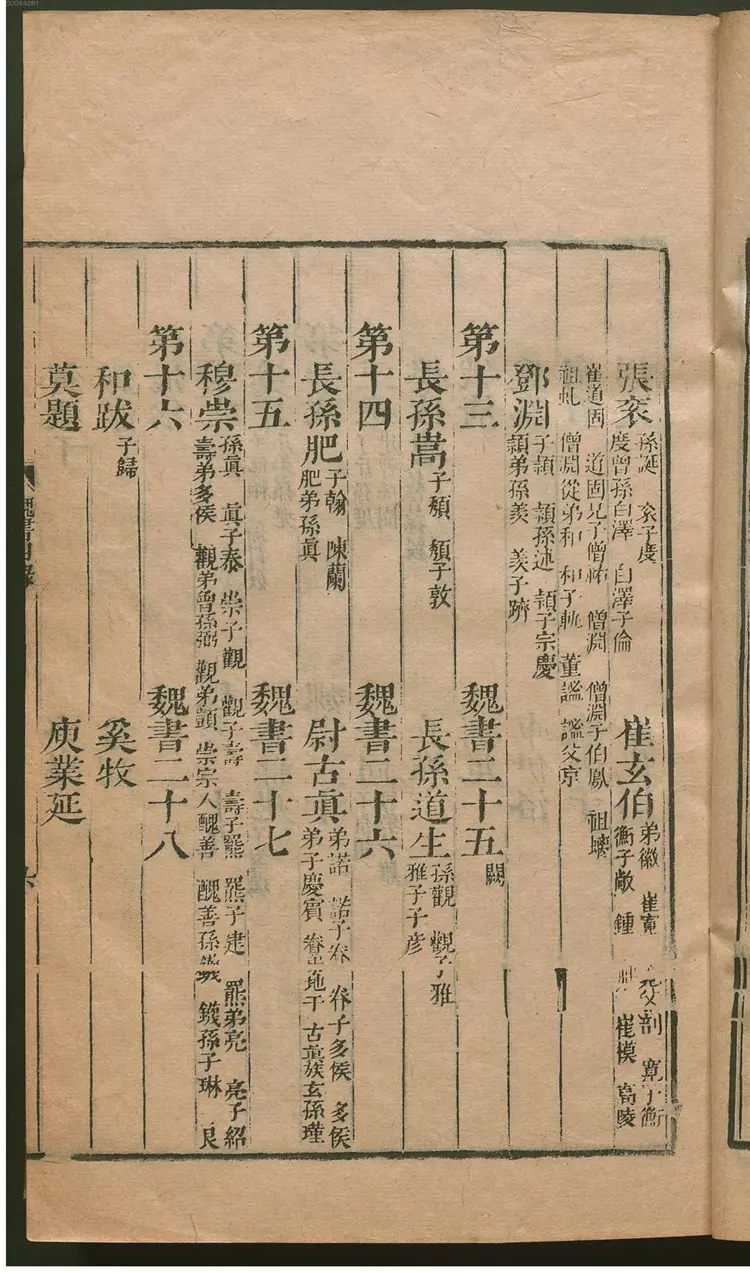 張袞 孫誕 袞子度 度曾孫白澤 白澤子倫 崔玄伯 弟徽 崔寬 父剖 寬子衡 衡子敞 鍾 崔模 高陵
崔道固 道固兄子僧祐 僧淵 僧淵子伯鳳 祖螭
祖虬 僧淵從弟和 和子軌 董謐 謐父京
鄧淵 子穎 穎孫述 穎子宗慶 穎弟孫羨 羨子躋
第十三 魏書二十五 闕
長孫嵩 子頹 頹子敦 長孫道生 孫觀 觀子雅 雅子子彥
第十四 魏書二十六
長孫肥 子翰 陳蘭 肥弟孫眞 尉古眞 弟諾 諾子眷 眷子多侯 多侯弟子慶賓 眷弟地干 古眞族玄孫瑾
第十五 魏書二十七
穆崇 孫眞 眞子泰 崇子觀 觀子壽 壽子羆 羆子建 羆弟亮 亮子紹 壽弟多侯 觀弟曾孫弼 觀弟顗 崇宗人醜善 醜善孫鐵 鐵孫子琳 良
第十六 魏書二十八
和跋 子歸 奚牧
莫題 庾業延
魏書目錄